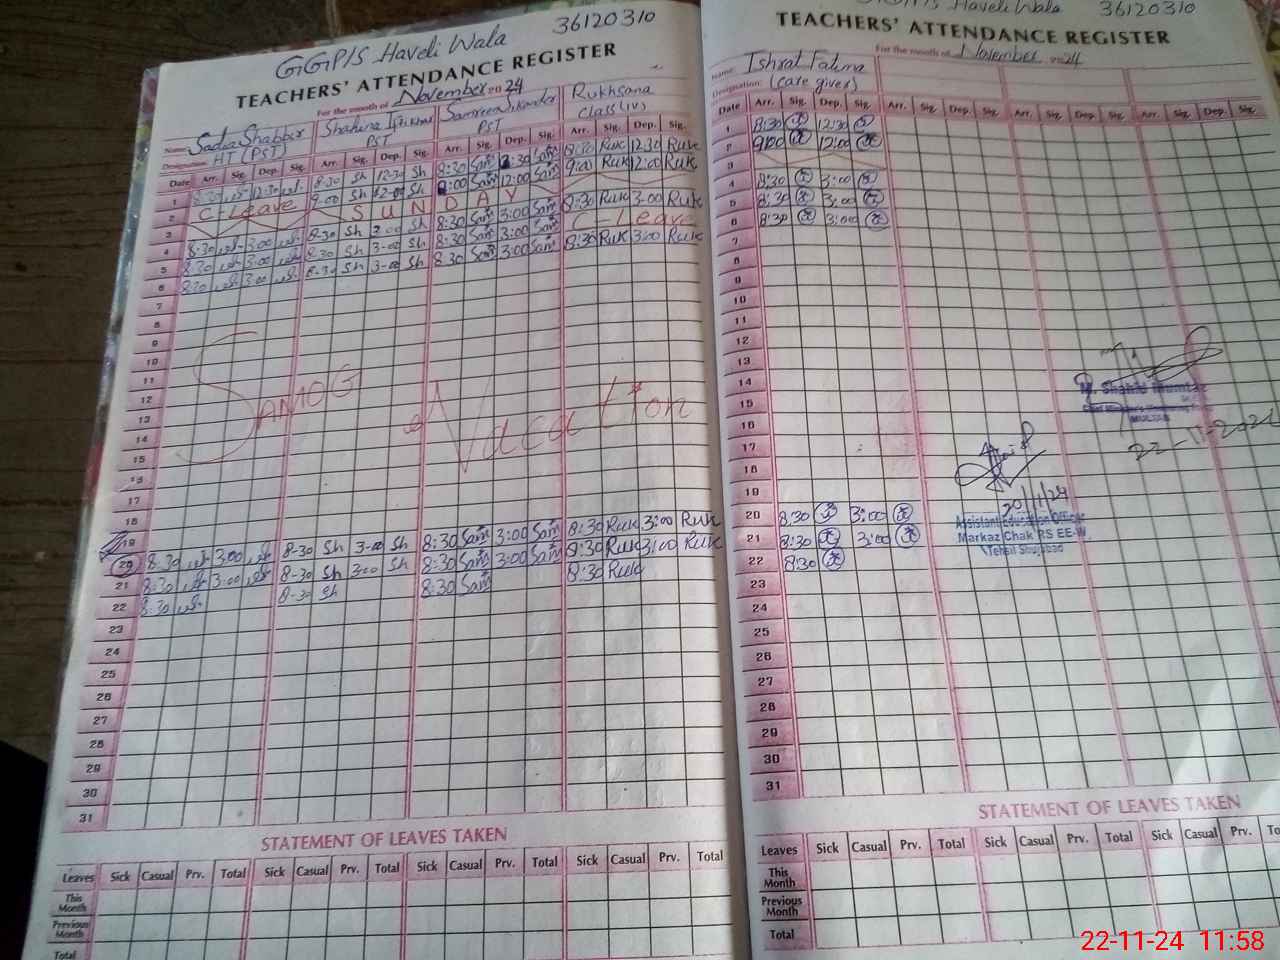 GGPS Haveli Wala 36120310
TEACHERS' ATTENDANCE REGISTER
For the month of November 2024
Name: Sadia Shabbir Shahina Samreen Sikander Rukhsana
Designation: HT (PST) PST PST Class (IV)
Date Arr. Sig. Dep. Sig. Arr. Sig. Dep. Sig. Arr. Sig. Dep. Sig. Arr. Sig. Dep. Sig.
1 8:30 12:30 8-30 Sh 12-30 Sh 8:30 Sam 12:30 Sam 8:30 Ruk 12:30 Ruk
2 C-Leave 9-00 Sh 12-00 Sh 9:00 Sam 12:00 Sam 9:00 Ruk 12:00 Ruk
3 SUNDAY
4 8-30 3:00 8-30 Sh 3-00 Sh 8:30 Sam 3:00 Sam 8:30 Ruk 3-00 Ruk
5 8:30 3:00 8-30 Sh 3-00 Sh 8:30 Sam 3:00 Sam C-Leave
6 8:30 3:00 8-30 Sh 3-00 Sh 8:30 Sam 3:00 Sam 8:30 Ruk 3:00 Ruk
7
8
9
10
11
12
SAMOG Vacation
13
14
15
16
17
18
19
20 8:30 3:00 8-30 Sh 3-00 Sh 8:30 Sam 3:00 Sam 8:30 Ruk 3:00 Ruk
21 8:30 3:00 8-30 Sh 3:00 Sh 8:30 Sam 3:00 Sam 8:30 Ruk 3:00 Ruk
22 8:30 8-30 Sh 8:30 Sam 8:30 Ruk
23
24
25
26
27
28
29
30
31
STATEMENT OF LEAVES TAKEN
Leaves Sick Casual Prv. Total Sick Casual Prv. Total Sick Casual Prv. Total Sick Casual Prv. Total
This Month
Previous Month
Total
Haveli Wala 36120310
TEACHERS' ATTENDANCE REGISTER
For the month of November 2024
Name: Ishrat Fatima
Designation: (Care giver)
Date Arr. Sig. Dep. Sig. Arr. Sig. Dep. Sig. Arr. Sig. Dep. Sig. Arr. Sig.
1 8:30 12:30
2 9:00 12:00
3
4 8:30 3:00
5 8:30 3:00
6 8:30 3:00
7
8
9
10
11
12
13
14
15
M. Shahid Mumtaz
MULTAN
16
22-11-2024
17
18
19
20 8:30 3:00
Assistant Education Officer
21 8:30 3:00
Markaz Chak RS EE-W
Tehsil Shujabad
22 8:30
23
24
25
26
27
28
29
30
31
STATEMENT OF LEAVES TAKEN
Leaves Sick Casual Prv. Total Sick Casual Prv. Total Sick Casual Prv.
This Month
Previous Month
Total
22-11-24 11:58